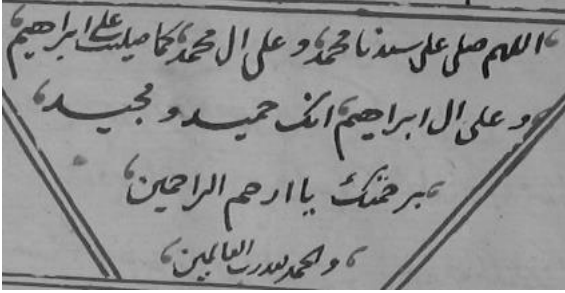 اللهم صلی علی سیدنا محمد، و علی ال محمد، کما صلیت علی ابراهیم
و علی ال ابراهیم، انک حمید و مجید،
برحمتک یا ارحم الراحمین
والحمد لله رب العالمین